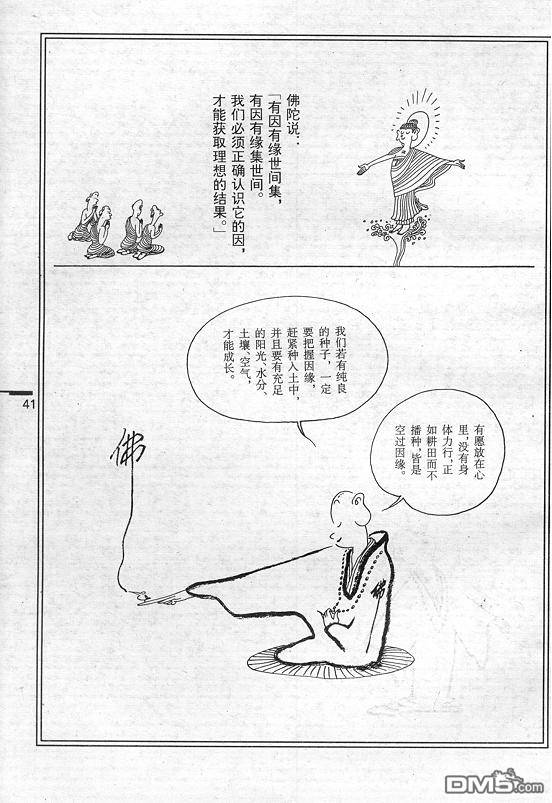 佛陀说：
「有因有缘世间集，
有因有缘集世间。
我们必须正确认识它的因，
才能获取理想的结果。」
我们若有纯良
的种子，一定
要把握因缘，
赶紧种入土中，
并且要有充足
的阳光、水分、
土壤、空气，
才能成长。
有愿放在心
里，没有身
体力行，正
如耕田而不
播种，皆是
空过因缘。
佛
佛
41
DM5.com